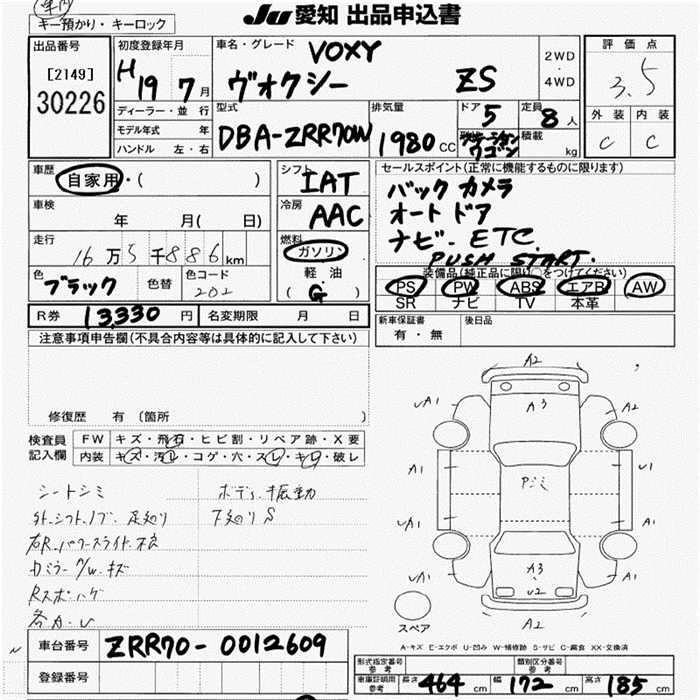 キー預かり・キーロック
Ju 愛知 出品申込書
出品番号
[2149]
30226
初度登録年月
H19 7月
ディーラー・並行
モデル年式 年
ハンドル 左・右
車名・グレード VOXY
ヴォクシー ZS
2WD
・
4WD
評価点
3.5
外装 内装
C C
型式
DBA-ZRR70W
排気量
1980 CC
ドア
5
ワゴン
定員
8人
積載
kg
車歴
自家用・( )
車検
年 月( 日)
走行
16万5千886km
色
ブラック
色替
色コード
202
シフト
IAT
冷房
AAC
燃料
ガソリン
軽油
( G )
セールスポイント(正常に機能するものに限ります)
バックカメラ
オートドア
ナビ. ETC.
PUSH START.
装備品(純正品に限り○をつけてください)
PS PW ABS エアB AW
SR ナビ TV 本革
R券 13,330円 名変期限 月 日
新車保証書
有・無
後日品
注意事項申告欄(不具合内容等は具体的に記入して下さい)
修復歴 有(箇所 )
検査員
記入欄
FW キズ・飛石・ヒビ割・リペア跡・X要
内装 キズ・汚レ・コゲ・穴・スレ・キレ・破レ
シートシミ ボデー振動
外.シフトノブ. 足廻り 下廻りS
右R.パワースライド不良
カミラー P/W.キズ
Rスポ.ハゲ
各A.U
A2
UA1 A3 A2
Pシミ
A1 U1
UA1 A1
A3
UA1 U2 A1
A2
スペア
A-キズ E-エクボ U-凹み W-補修跡 S-サビ C-腐食 XX-交換済
車台番号 ZRR70-0012609
登録番号
形式指定番号
参考
類別区分番号
参考
車庫証明用
参考
長さ 464 cm 幅 172 cm 高さ 185 cm